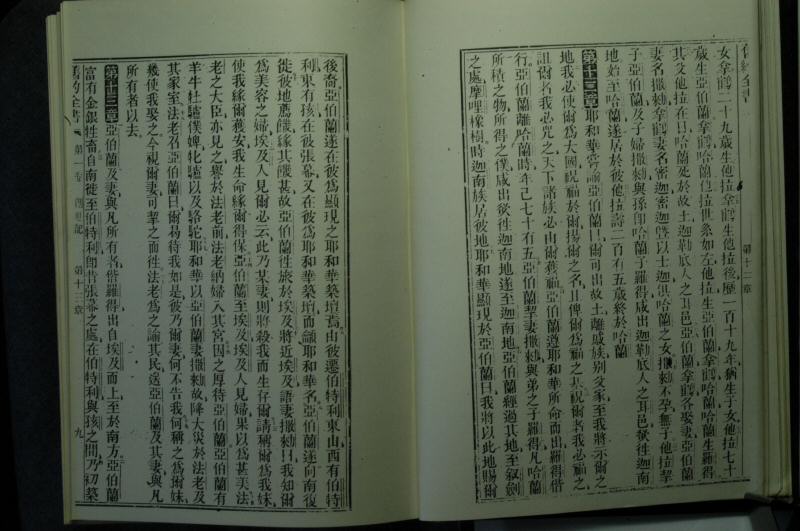 舊約全書
女拿鶴二十九歲生他拉拿鶴生他拉後歷一百十九年猶生子女他拉七十
歲生亞伯蘭拿鶴哈蘭他拉世系如左他拉生亞伯蘭拿鶴哈蘭哈蘭生羅得
其父他拉在日哈蘭死於故土迦勒底人之耳邑亞伯蘭拿鶴各娶妻亞伯蘭
妻名撒勑拿鶴妻名密迦密迦暨以士迦俱哈蘭之女撒勑不孕無子他拉挈
子亞伯蘭及子婦撒勑與孫即哈蘭子羅得咸出迦勒底人之耳邑欲往迦南
地始至哈蘭遂居於彼他拉壽二百有五歲終於哈蘭
第十二章耶和華嘗諭亞伯蘭曰爾可出故土離戚族別父家至我將示爾之
地我必使爾爲大國祝福於爾揚爾之名且俾爾爲福之基祝爾者我必福之
詛爾者我必咒之天下諸族必由爾獲福亞伯蘭遵耶和華所命而出羅得偕
行亞伯蘭離哈蘭時年已七十有五亞伯蘭挈妻撒勑與弟之子羅得凡哈蘭
所積之物所得之僕咸出欲往迦南地遂至迦南地亞伯蘭經過其地至叙劍
之處摩哩橡樹時迦南族居彼地耶和華顯現於亞伯蘭曰我將以此地賜爾
第十二章
後裔亞伯蘭遂在彼爲顯現之耶和華築壇焉由彼遷伯特利東山西有伯特
利東有孩在彼張幕又在彼爲耶和華築壇而籲耶和華名亞伯蘭遂向南復
徙彼地薦饑緣其饑甚故亞伯蘭往旅於埃及將近埃及語妻撒勑曰我知爾
爲美容之婦埃及人見爾必云此乃某妻則將殺我而生存爾請稱爾爲我妹
使我緣爾獲安我生命緣爾得保亞伯蘭至埃及埃及人見婦果以爲甚美法
老之大臣亦見之譽於法老前法老納婦入其宮因之厚待亞伯蘭亞伯蘭有
羊牛牡驢僕婢牝驢以及駱駝耶和華以亞伯蘭妻撒勑故降大災於法老及
其家室法老召亞伯蘭曰爾曷待我如是彼乃爾妻何不告我何稱之爲爾妹
幾使我娶之今視爾妻可挈之而往法老爲之諭其民送亞伯蘭及其妻與凡
所有者以去
第十三章亞伯蘭及妻與凡所有者偕羅得出自埃及而上至於南方亞伯蘭
富有金銀牲畜自南徙至伯特利即昔張幕之處在伯特利與孩之間乃初築
舊約全書 第一卷 創世記 第十三章 九